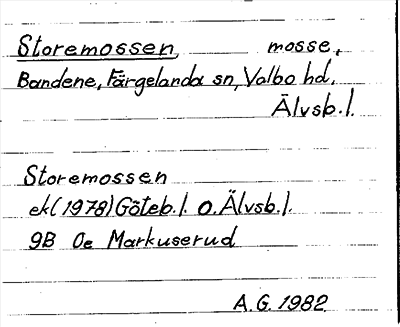 Storemossen, mosse,
Bandene, Färgelanda sn, Valbo hd,
Älvsb. l.
Storemossen
ek (1978) Göteb. l. o. Älvsb. l.
9B 0e Markuserud
A. G. 1982